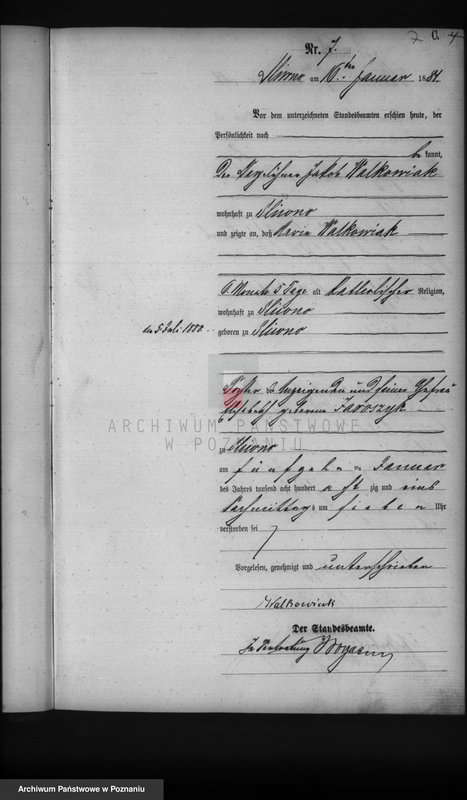 7 C. 4
Nr. 7.
am 16ten Januar 1881.
Vor dem unterzeichneten Standesbeamten erschien heute, der
Persönlichkeit nach
be kannt,
Der Tagelöhner Jakob Walkowiak
wohnhaft zu
und zeigte an, daß Maria Walkowiak
6 Monate Tage alt katholischer Religion,
wohnhaft zu
den 5. Juli 1880. geboren zu
Tochter des Anzeigenden und seiner Ehefrau
geborene Jaroszyk
ARCHIWUM PAŃSTWOWE
W POZNANIU
zu
am fünfzehnten Januar
des Jahres tausend acht hundert acht zig und eins
Nachmittags um sieben Uhr
verstorben sei
Vorgelesen, genehmigt und unterschrieben
Walkowiak
Der Standesbeamte.
In Vertretung
Archiwum Państwowe w Poznaniu